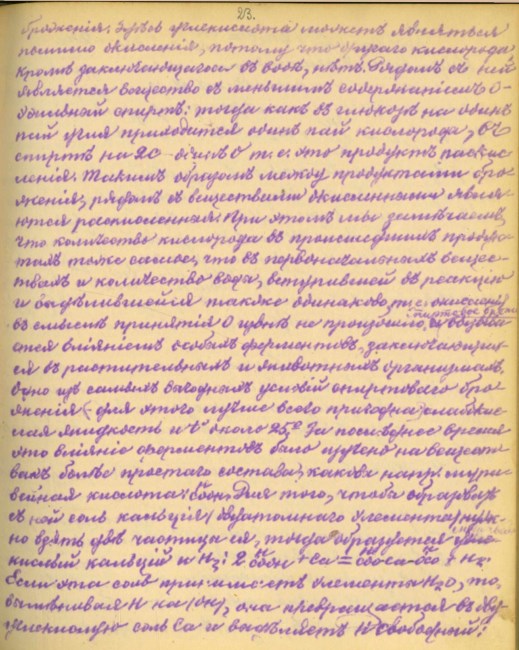 23.
броженія. Здѣсь углекислота можетъ являться
помимо окисленія, потому что другаго кислорода
кромѣ заключающагося въ водѣ, нѣтъ. Рядомъ съ ней
является вещество съ меньшимъ содержаніемъ O-
виннный спиртъ: тогда какъ въ глюкозѣ на одинъ
пай угля приходится одинъ пай кислорода, въ
спиртѣ на 2C - одинъ O т. е. это продуктъ раскис-
ленія. Такимъ образомъ между продуктами бро-
женія, рядомъ съ веществами окисленными явля-
ются раскисленныя. При этомъ мы замѣчаемъ,
что количество кислорода въ происшедшихъ продук-
тахъ тоже самое, что въ первоначальныхъ вещес-
твахъ и количество воды, вступившей въ реакцію
и выдѣлившейся также одинаково, т. е. окисленія
въ смыслѣ принятія O извнѣ не произошло.
спиртовое броже
ется вліяніемъ особыхъ ферментовъ, заключающих-
ся въ растительныхъ и животныхъ организмахъ.
Одно изъ самыхъ выгодныхъ условій спиртоваго бро-
женія (для этого лучше всего пригодна) слабокис-
лая жидкость и t° около 25°. За послѣднее время
это вліяніе ферментовъ было изучено на вещест-
вахъ болѣе простаго состава, какова напр. мура-
вейная кислота: Для того, чтобы образовать
съ ней соль кальція (двуатомнаго элемента) нуж-
но взять двѣ частицы ея, тогда образуется
кислый кальцій и H₂: 2 + Ca = + H₂
Если эта соль принимаетъ элементы H₂O, то,
обмѣнивая H на (OH), она превращается въ дву-
углекислую соль Ca и выдѣляетъ H свободный: